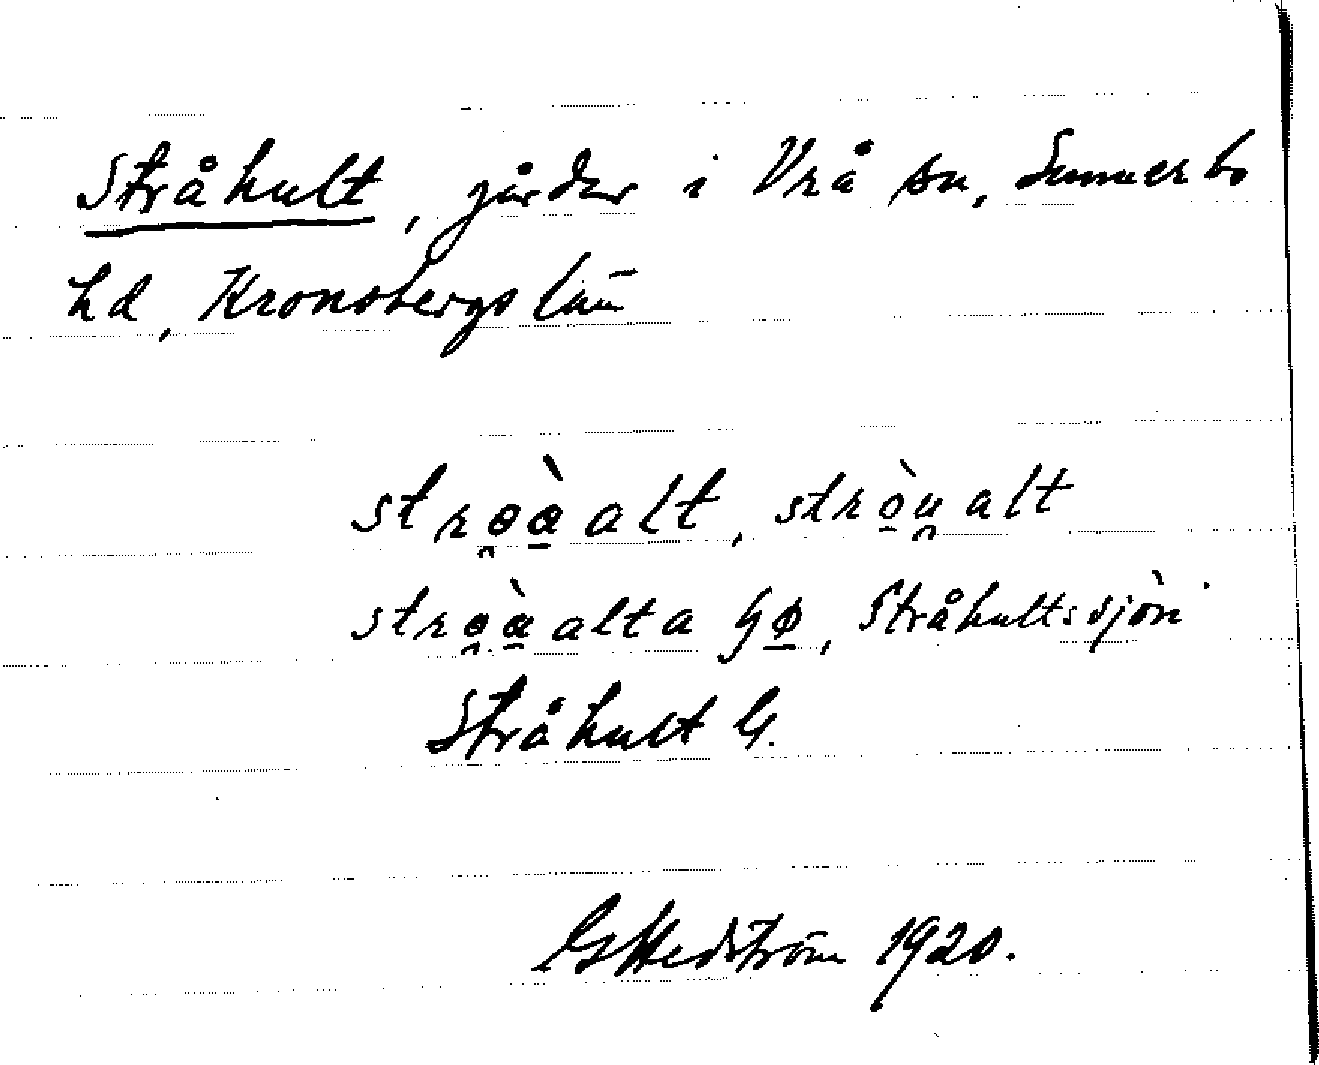 Stråhult, gårdar i Vrå sn, Sunnerbo
hd, Kronobergs län
stro̯à̱alt, strò̱u̯alt
stro̯à̱alta Stråhultssjön
Stråhult G.
G Hedström 1920.